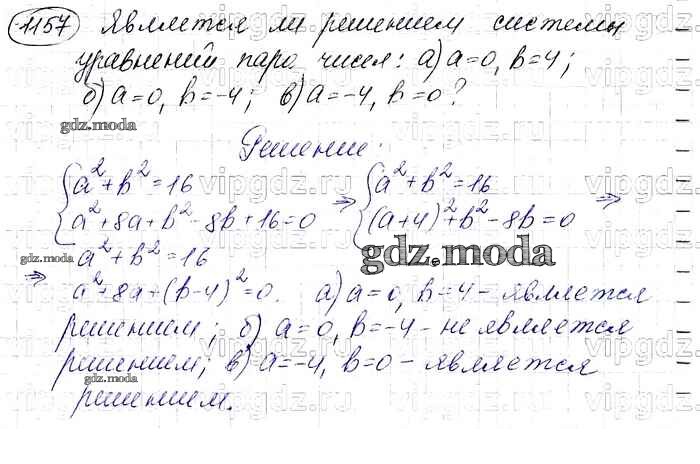 1157 Является ли решением системы
уравнений пара чисел: а) a=0, b=4;
б) a=0, b=-4; в) a=-4, b=0?
gdz.moda
Решение:
{a²+b²=16 ⇒ {a²+b²=16 ⇒
{a²+8a+b²-8b+16=0 {(a+4)²+b²-8b=0
gdz.moda
gdz.moda
a²+b²=16
⇒ a²+8a+(b-4)²=0. а) a=0, b=4 - является
решением; б) a=0, b=-4 - не является
решением; в) a=-4, b=0 - является
gdz.moda
решением.
vipgdz.ru